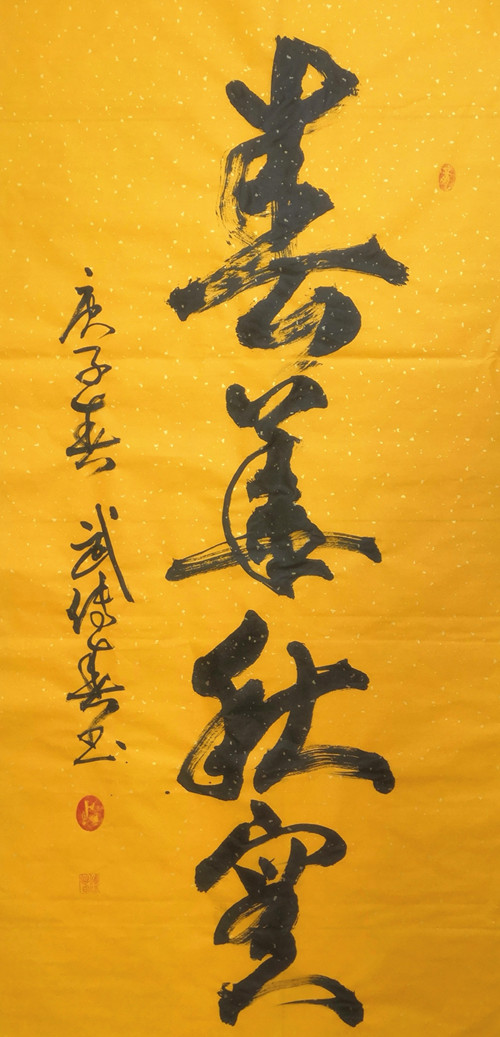 春華秋實
庚子春 武传春书